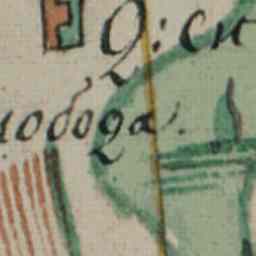 Д: ск
лобода.